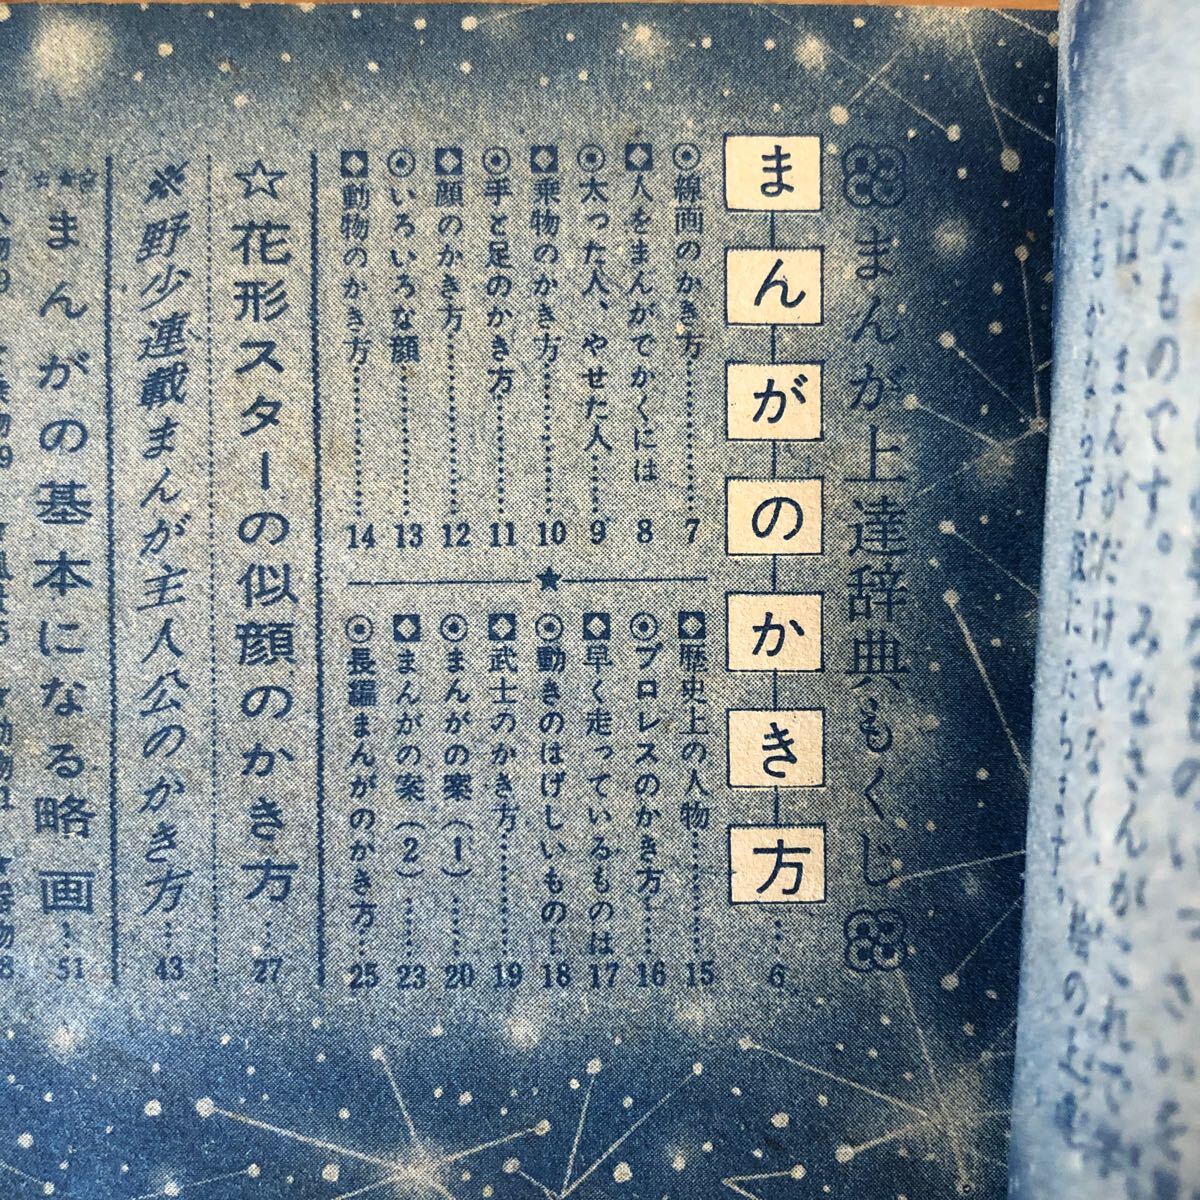 まんが上達辞典もくじ
まんがのかき方…6
線画のかき方…7
人をまんがでかくには 8
太った人、やせた人…9
乗物のかき方…10
手と足のかき方…11
顔のかき方…12
いろいろな顔…13
動物のかき方…14
歴史上の人物…15
プロレスのかき方…16
早く走っているものは 17
動きのはげしいもの…18
武士のかき方…19
まんがの案(1)…20
まんがの案(2)…23
長編まんがのかき方…25
☆花形スターの似顔のかき方…27
※野少連載まんが主人公のかき方…43
まんがの基本になる略画…51